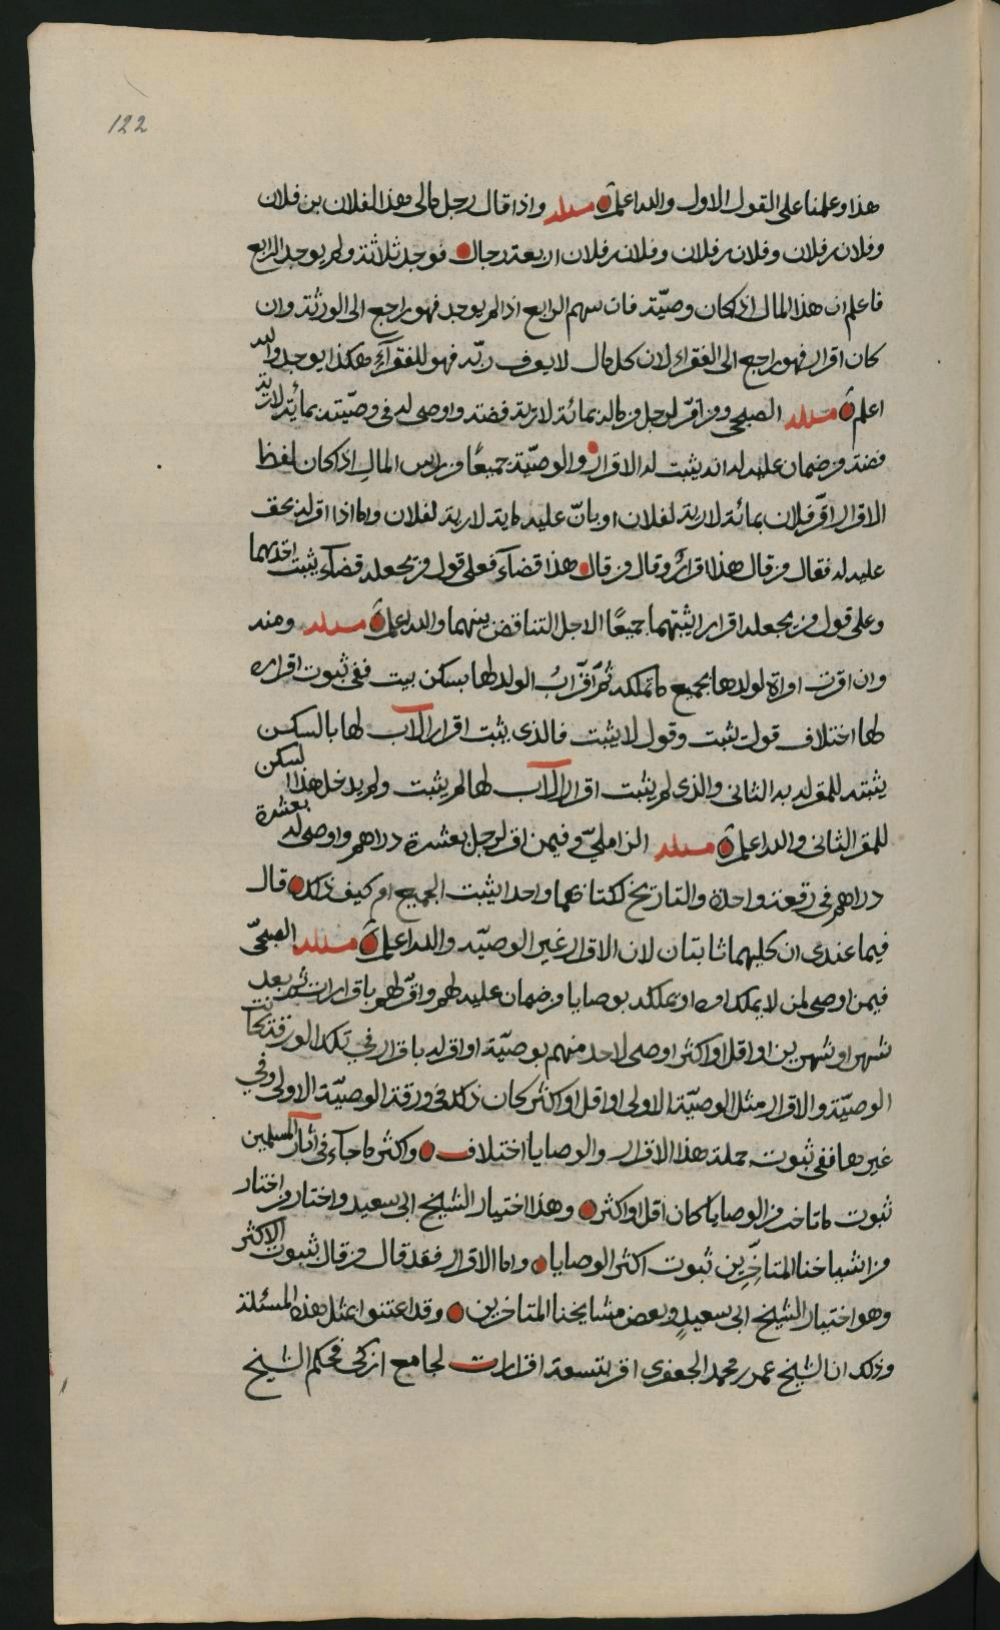 122
هذا وعملنا على القول الاول والله اعلم مسئلة واذا قال رجل مالى هذا لفلان بن فلان
وفلان بن فلان وفلان بن فلان وفلان بن فلان اربعة رجال فوجد ثلاثة ولم يوجد الرابع
فاعلم ان هذا المال اذا كان وصيّة فان سهم الرابع اذا لم يوجد فهو راجع الى الورثة وان
كان اقرار فهو راجع الى الفقراء لان كل مال لا يعرف ربّه فهو للفقرآء هكذا يوجد والله
اعلم مسئلة الصبحي ومن اقرّ لرجل من ماله بمائة لارية فضة واوصى له فى وصيّته بمائة لارية
فضة من ضمان عليه له انه يثبت له الاقرار والوصيّة جميعًا من راس المال اذا كان لفظ
الاقرار اقرّ فلان بمائة لارية لفلان او بانّ عليه ماية لارية لفلان واما اذا اقر له بحق
عليه له فقال من قال هذا اقرارٌ وقال من قال هذا قضآء فعلى قول من يجعله قضآء يثبت احدهما
وعلى قول من يجعله اقرار يثبتهما جميعًا الاجل التناقض بينهما والله اعلم مسئلة ومنه
وان اقرت امراة لولدها بجميع ما تملكه ثمّ اقرّ ابُ الولد لها بسكن بيت ففى ثبوت اقراره
لها اختلاف قول يثبت وقول لا يثبت فالذى يثبت اقرار الاب لها بالسكن
يثبته للمقر له به الثانى والذى لم يثبت اقرار الاب لها لم يثبت ولم يدخل هذا السكن
للمقر الثانى والله اعلم مسئلة الزاملىّ وفيمن اقر لرجل بعشرة دراهم واوصى له بعشرة
دراهم فى رقعة واحدة والتاريخ لكتابتهما واحدا يثبت الجميع ام كيف ذلك قال
فيما عندى ان كليهما ثابتان لان الاقرار غير الوصيّه والله اعلم مسئلة الصبحىّ
فيمن اوصى لمن لا يملك امره او يملكه بوصايا من ضمان عليه لهم واقرّ لهم باقرارات ثم بعد
شهر او شهرين او اقل او اكثر اوصى لاحد منهم بوصيّة او اقر له باقرار فى تلك الورقة كانت
الوصيّة والاقرار مثل الوصيّة الاولى او اقل او اكثر كان ذلك فى ورقة الوصيّة الاولى وفي
غيرها ففى ثبوت جملة هذا الاقرار والوصايا اختلاف واكثر ما جآء فى آثار المسلمين
ثبوت ما تاخر من الوصايا كان اقل او اكثر وهذا اختيار الشيخ ابى سعيد واختار من اختار
من اشياخنا المتاخّرين ثبوت اكثر الوصايا واما الاقرار فقد قال من قال بثبوت الاكثر
وهو اختيار الشيخ ابى سعيدٍ وبعض مشايخنا المتاخرين وقد اعتنوا بمثل هذه المسئلة
وذلك ان الشيخ عمر بن محمد الجعفرى اقر بتسعة اقرارات لجامع ازكى فحكم الشيخ